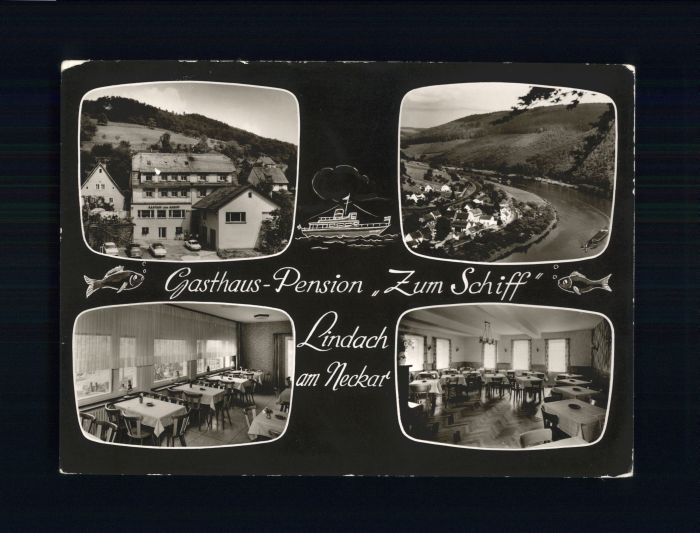 Gasthaus-Pension „Zum Schiff"
Lindach
am Neckar